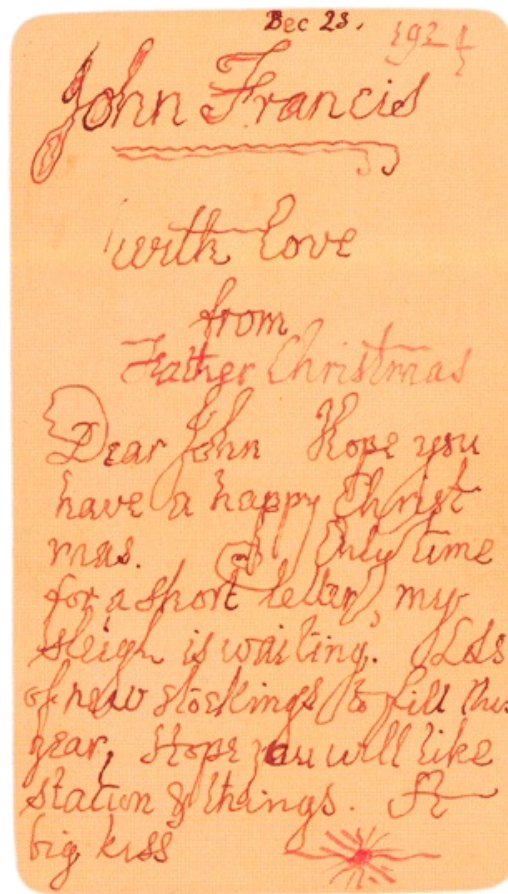 Dec 23.
1924
John Francis
with love
from
Father Christmas
Dear John Hope you
have a happy Christ
mas. Only time
for a short letter, my
sleigh is waiting. Lots
of new stockings to fill this
year, Hope you will like
station & things. A
big kiss